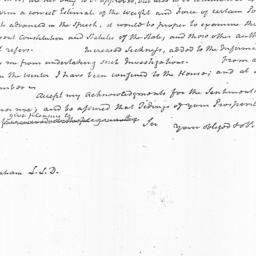 is, are not only to be approved, but also to be
form a correct Estimate of the weight and Force of certain
ts advanced in the Speech, it would be proper to examine the
our Constitution and Statutes of the State, and those other auth
t refers. Increased Sickness, added to the Infirmi
s me from undertaking such Investigations. From
in the winter I have been confined to the House; and at
mber in
Accept my Acknowledgments for the Sentiments
nor me; and be assured that Tidings of your Prosperit
give pleasure to
Sir Your obliged &
aham L.L.D.